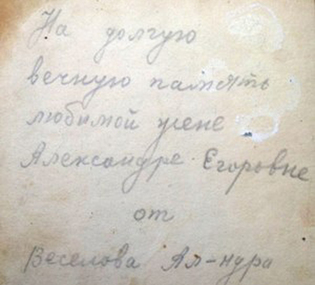 На долгую
вечную память
любимой жене
Александре Егоровне
от
Веселова Ал-ндра